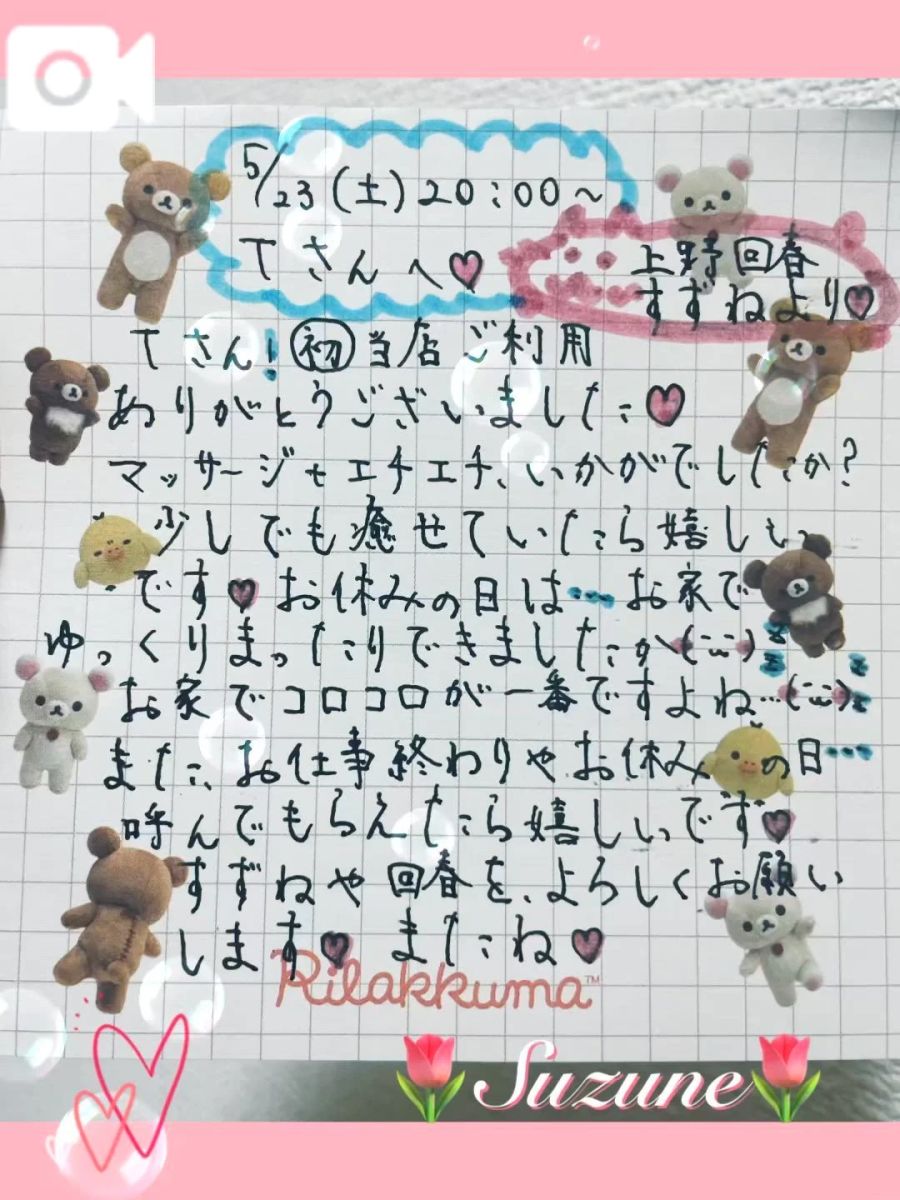 5/23(土)20:00〜
Tさんへ♥
上野回春
すずねより♥
Tさん!初当店ご利用
ありがとうございました♥
マッサージやエチエチ、いかがでしたか?
少しでも癒せていたら嬉しい
です♥お休みの日は…お家で
ゆっくりまったりできましたか(¨̮)
お家でコロコロが一番ですよね…(¨̮)
また、お仕事終わりやお休みの日…
呼んでもらえたら嬉しいです♥
すずねや回春を、よろしくお願い
します♥またね♥
Rilakkuma™
Suzune